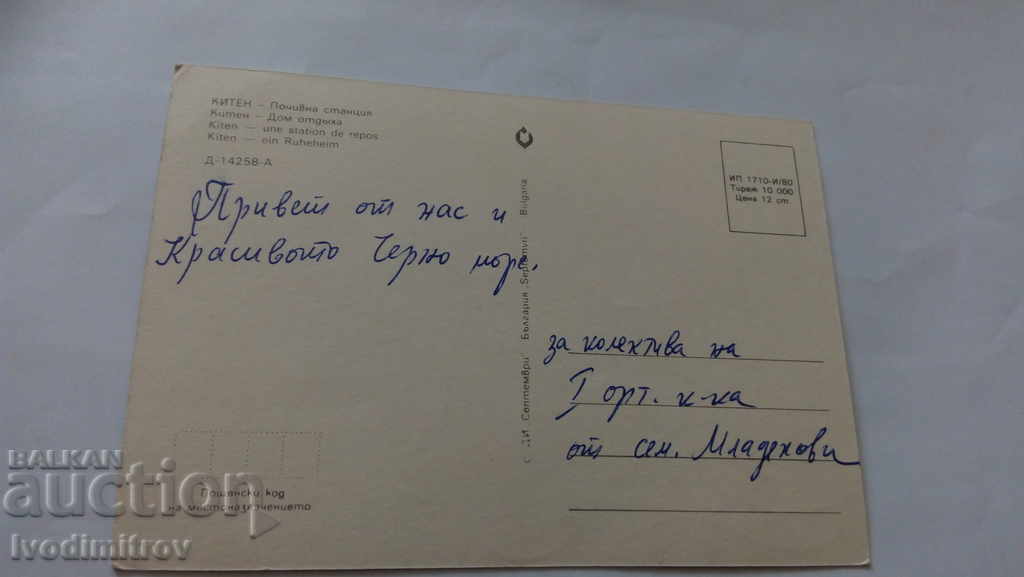 КИТЕН — Почивна станция
Китен — Дом отдыха
Kiten — une station de repos
Kiten — ein Ruheheim
Д-14258-А
Привет от нас и
Красивото Черно море.
ДИ „Септември“ България „Septemvri“ Bulgaria
ИП 1710-И/80
Тираж 10 000
Цена 12 ст.
за колектива на
I орт. к-ка
от сем. Младенови
Пощенски код
на местоназначението
BALKAN
auction
Ivodimitrov